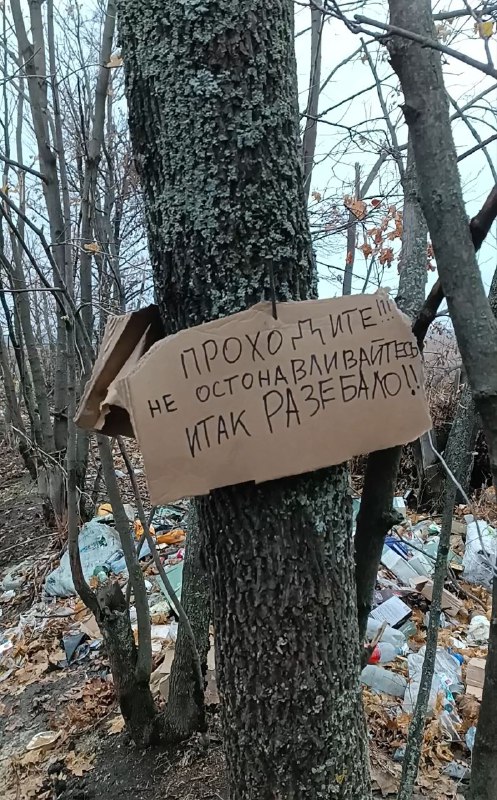 ПРОХОДИТЕ!!!
НЕ ОСТОНАВЛИВАЙТЕСЬ
ИТАК РАЗЕБАЛО!!